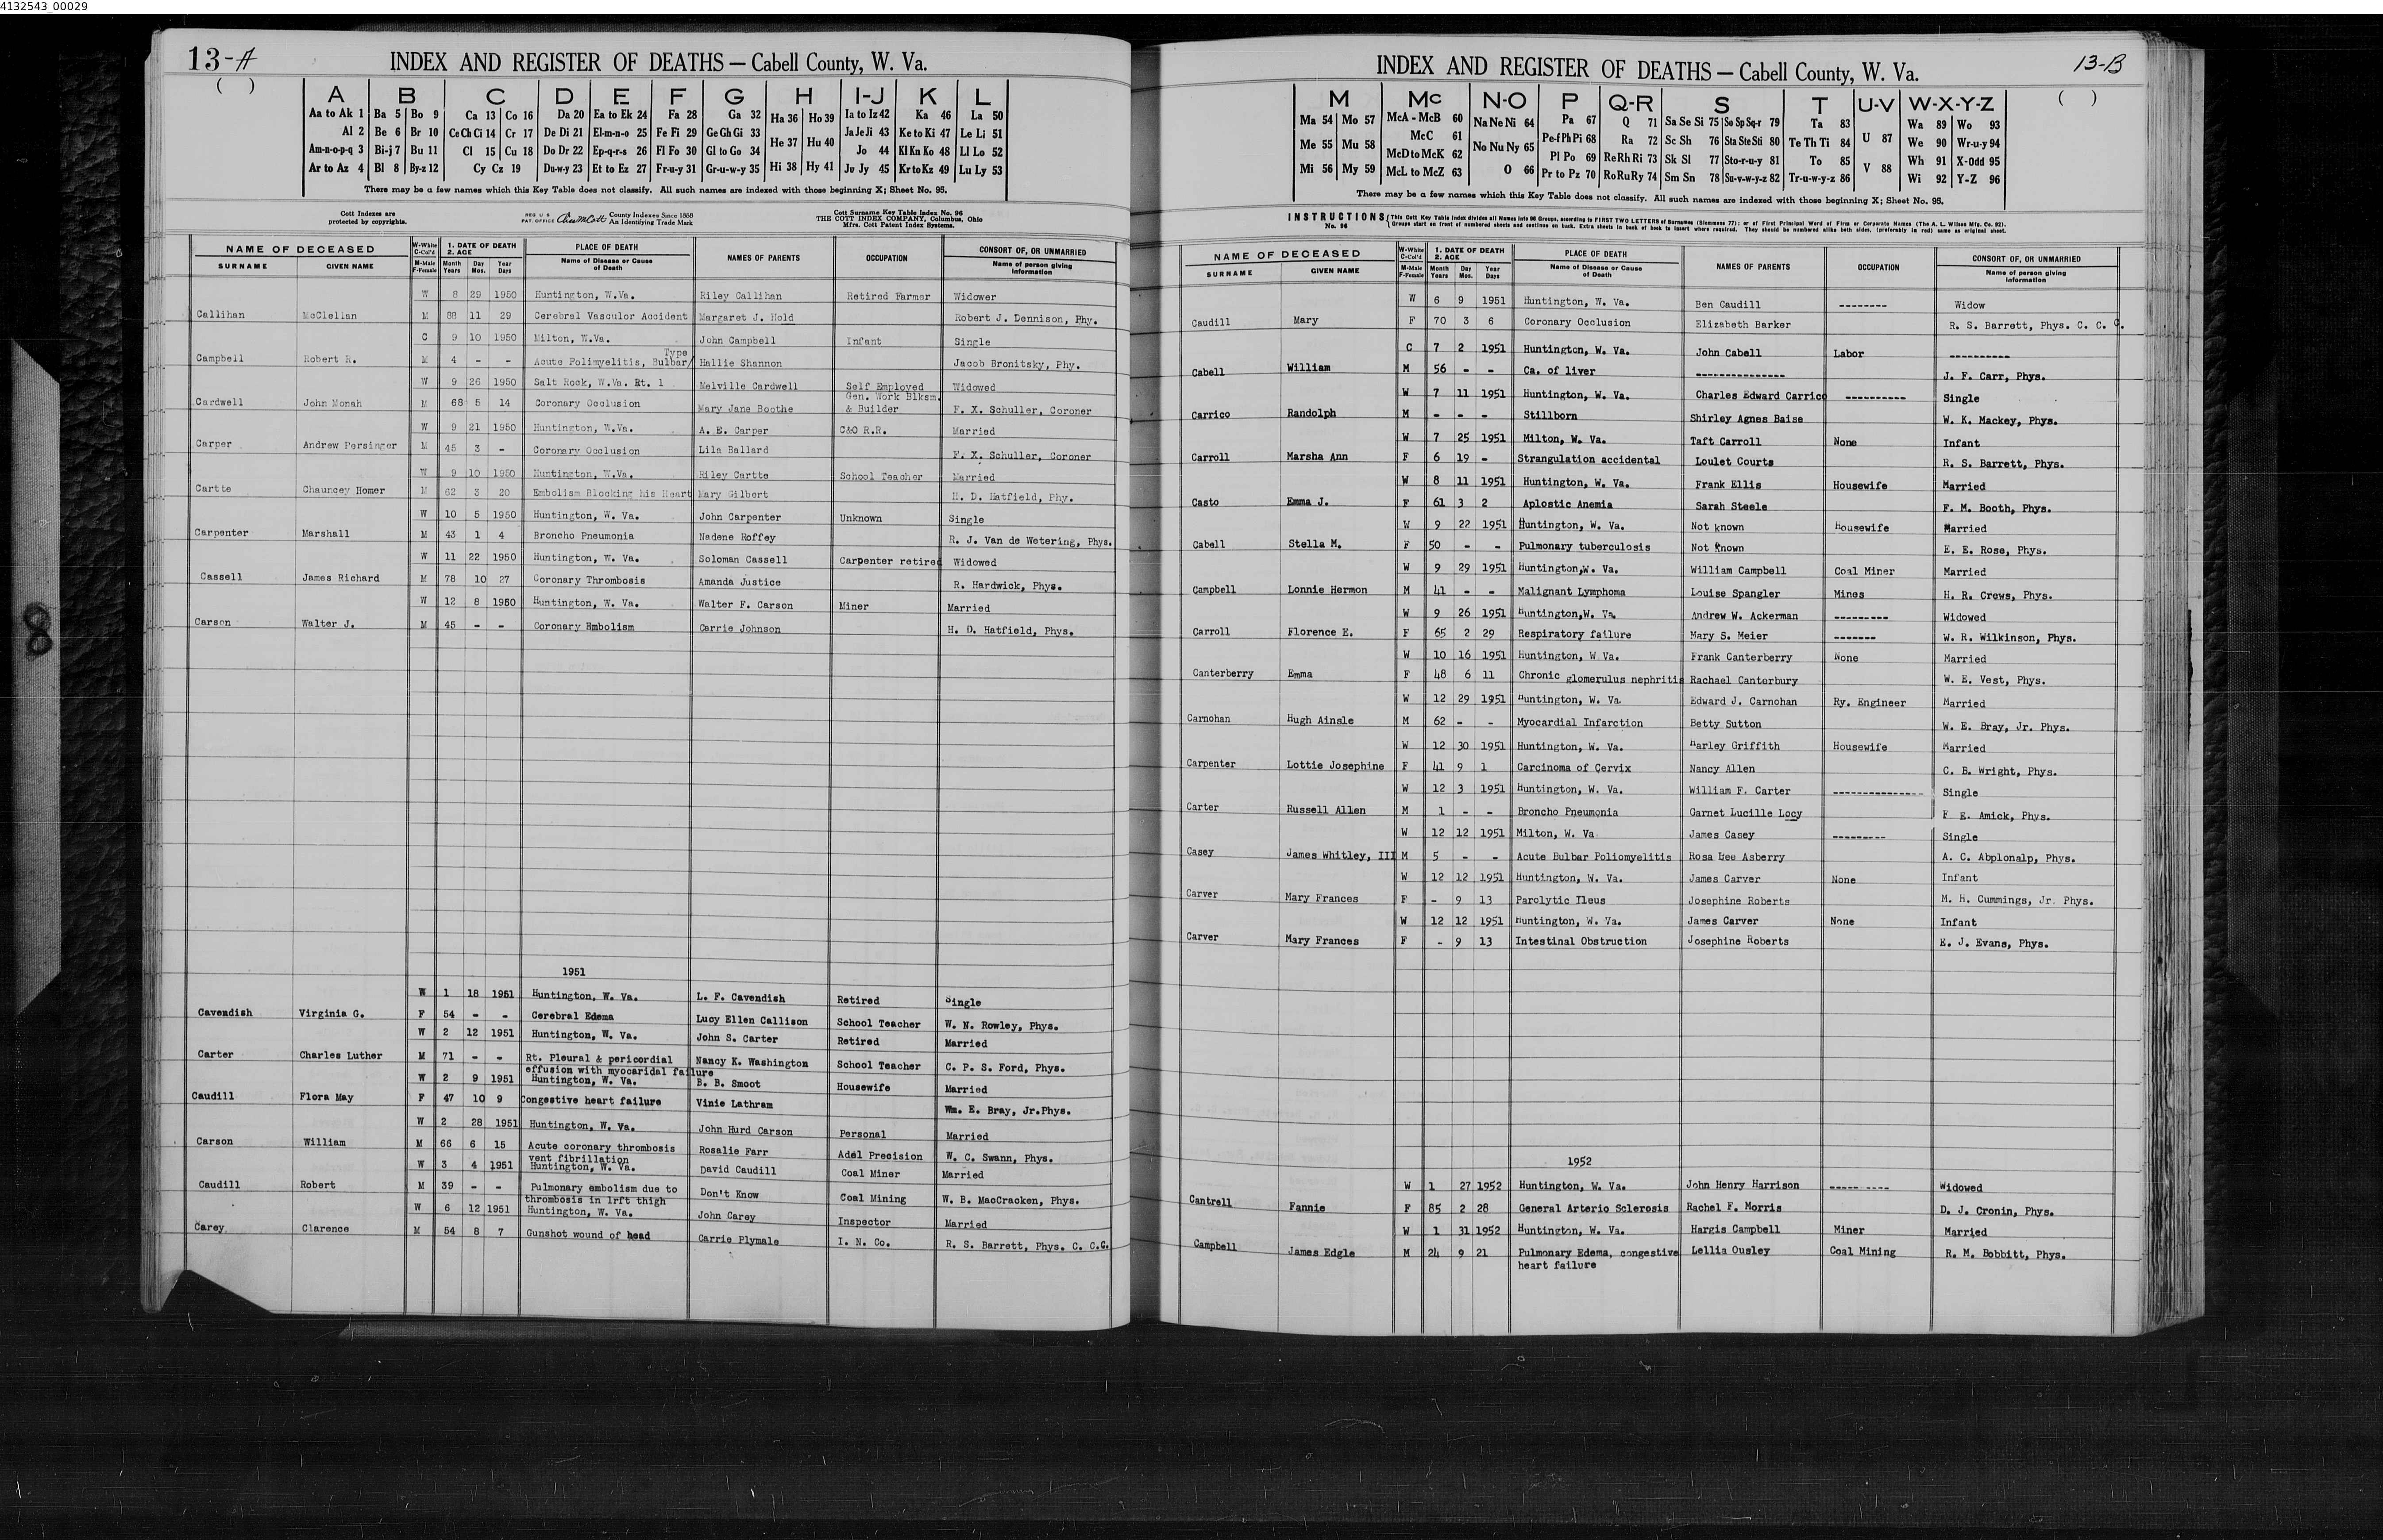 4132543_00029
13-A
INDEX AND REGISTER OF DEATHS — Cabell County, W. Va.
( )
A B C D E F G H I-J K L
Aa to Ak 1 Ba 5 Bo 9 Ca 13 Co 16 Da 20 Ea to Ek 24 Fa 28 Ga 32 Ha 36 Ho 39 Ia to Iz 42 Ka 46 La 50
Al 2 Be 6 Br 10 Ce Ch Ci 14 Cr 17 De Di 21 El-m-n-o 25 Fe Fi 29 Ge Gh Gi 33 He 37 Hu 40 Ja Je Ji 43 Ke to Ki 47 Le Li 51
Am-n-o-p-q 3 Bi-j 7 Bu 11 Cl 15 Cu 18 Do Dr 22 Ep-q-r-s 26 Fl Fo 30 Gl to Go 34 Jo 44 Kl Kn Ko 48 Ll Lo 52
Ar to Az 4 Bl 8 By-z 12 Cy Cz 19 Du-w-y 23 Et to Ez 27 Fr-u-y 31 Gr-u-w-y 35 Hi 38 Hy 41 Ju Jy 45 Kr to Kz 49 Lu Ly 53
There may be a few names which this Key Table does not classify. All such names are indexed with those beginning X; Sheet No. 95.
Cott Indexes are protected by copyrights.
REG U S PAT. OFFICE County Indexes Since 1888 An Identifying Trade Mark
Cott Surname Key Table Index No. 96
THE COTT INDEX COMPANY, Columbus, Ohio
Mfrs. Cott Patent Index Systems.
NAME OF DECEASED W-White C-Col'd 1. DATE OF DEATH 2. AGE PLACE OF DEATH NAMES OF PARENTS OCCUPATION CONSORT OF, OR UNMARRIED
SURNAME GIVEN NAME M-Male F-Female Month Years Day Mos. Year Days Name of Disease or Cause of Death Name of person giving information
W 8 29 1950 Huntington, W.Va. Riley Callihan Retired Farmer Widower
Callihan McClellan M 88 11 29 Cerebral Vasculor Accident Margaret J. Hold Robert J. Dennison, Phy.
C 9 10 1950 Milton, W.Va. John Campbell Infant Single
Campbell Robert R. M 4 - - Acute Polimyelitis, Bulbar/ Type Hallie Shannon Jacob Bronitsky, Phy.
W 9 26 1950 Salt Rock, W.Va. Rt. 1 Melville Cardwell Self Employed Widowed
Cardwell John Monah M 68 5 14 Coronary Occlusion Mary Jane Boothe Gen. Work Blksm. & Builder F. X. Schuller, Coroner
W 9 21 1950 Huntington, W.Va. A. E. Carper C&O R.R. Married
Carper Andrew Persinger M 45 3 - Coronary Occlusion Lila Ballard F. X. Schuller, Coroner
W 9 10 1950 Huntington, W.Va. Riley Cartte School Teacher Married
Cartte Chauncey Homer M 62 3 20 Embolism Blocking his Heart Mary Gilbert H. D. Hatfield, Phy.
W 10 5 1950 Huntington, W. Va. John Carpenter Unknown Single
Carpenter Marshall M 43 1 4 Broncho Pneumonia Nadene Roffey R. J. Van de Wetering, Phys.
W 11 22 1950 Huntington, W. Va. Soloman Cassell Carpenter retired Widowed
Cassell James Richard M 78 10 27 Coronary Thrombosis Amanda Justice R. Hardwick, Phys.
W 12 8 1950 Huntington, W. Va. Walter F. Carson Miner Married
Carson Walter J. M 45 - - Coronary Embolism Carrie Johnson H. D. Hatfield, Phys.
1951
W 1 18 1951 Huntington, W. Va. L. F. Cavendish Retired Single
Cavendish Virginia G. F 54 - - Cerebral Edema Lucy Ellen Callison School Teacher W. N. Rowley, Phys.
W 2 12 1951 Huntington, W. Va. John S. Carter Retired Married
Carter Charles Luther M 71 - - Rt. Pleural & pericordial Nancy K. Washington School Teacher C. P. S. Ford, Phys.
effusion with myocaridal failure
W 2 9 1951 Huntington, W. Va. B. B. Smoot Housewife Married
Caudill Flora May F 47 10 9 Congestive heart failure Vinie Lathram Wm. E. Bray, Jr.Phys.
W 2 28 1951 Huntington, W. Va. John Hurd Carson Personal Married
Carson William M 66 6 15 Acute coronary thrombosis Rosalie Farr Adel Precision W. C. Swann, Phys.
vent fibrillation
W 3 4 1951 Huntington, W. Va. David Caudill Coal Miner Married
Caudill Robert M 39 - - Pulmonary embolism due to Don't Know Coal Mining W. B. MacCracken, Phys.
thrombosis in lrft thigh
W 6 12 1951 Huntington, W. Va. John Carey Inspector Married
Carey Clarence M 54 8 7 Gunshot wound of head Carrie Plymale I. N. Co. R. S. Barrett, Phys. C. C.C.
13-B
INDEX AND REGISTER OF DEATHS — Cabell County, W. Va.
( )
M Mc N-O P Q-R S T U-V W-X-Y-Z
Ma 54 Mo 57 McA - McB 60 Na Ne Ni 64 Pa 67 Q 71 Sa Se Si 75 So Sp Sq-r 79 Ta 83 U 87 Wa 89 Wo 93
Me 55 Mu 58 McC 61 No Nu Ny 65 Pe-f Ph Pi 68 Ra 72 Sc Sh 76 Sta Ste Sti 80 Te Th Ti 84 We 90 Wr-u-y 94
McD to McK 62 Pl Po 69 Re Rh Ri 73 Sk Sl 77 Sto-r-u-y 81 To 85 V 88 Wh 91 X-Odd 95
Mi 56 My 59 McL to McZ 63 O 66 Pr to Pz 70 Ro Ru Ry 74 Sm Sn 78 Su-v-w-y-z 82 Tr-u-w-y-z 86 Wi 92 Y-Z 96
There may be a few names which this Key Table does not classify. All such names are indexed with those beginning X; Sheet No. 95.
INSTRUCTIONS No. 96 This Cott Key Table Index divides all Names into 96 Groups, according to FIRST TWO LETTERS of Surnames (Simmons 77); or of First Principal Word of Firm or Corporate Names (The A. L. Wilson Mfg. Co. 92).
Groups start on front of numbered sheets and continue on back. Extra sheets in back of book to insert where required. They should be numbered alike both sides, (preferably in red) same as original sheet.
NAME OF DECEASED W-White C-Col'd 1. DATE OF DEATH 2. AGE PLACE OF DEATH NAMES OF PARENTS OCCUPATION CONSORT OF, OR UNMARRIED
SURNAME GIVEN NAME M-Male F-Female Month Years Day Mos. Year Days Name of Disease or Cause of Death Name of person giving information
W 6 9 1951 Huntington, W. Va. Ben Caudill -------- Widow
Caudill Mary F 70 3 6 Coronary Occlusion Elizabeth Barker R. S. Barrett, Phys. C. C. C.
C 7 2 1951 Huntington, W. Va. John Cabell Labor ----------
Cabell William M 56 - - Ca. of liver --------------- J. F. Carr, Phys.
W 7 11 1951 Huntington, W. Va. Charles Edward Carrico ---------- Single
Carrico Randolph M - - - Stillborn Shirley Agnes Baise W. K. Mackey, Phys.
W 7 25 1951 Milton, W. Va. Taft Carroll None Infant
Carroll Marsha Ann F 6 19 - Strangulation accidental Loulet Courts R. S. Barrett, Phys.
W 8 11 1951 Huntington, W. Va. Frank Ellis Housewife Married
Casto Emma J. F 61 3 2 Aplostic Anemia Sarah Steele F. M. Booth, Phys.
W 9 22 1951 Huntington, W. Va. Not known Housewife Married
Cabell Stella M. F 50 - - Pulmonary tuberculosis Not Known E. E. Rose, Phys.
W 9 29 1951 Huntington,W. Va. William Campbell Coal Miner Married
Campbell Lonnie Hermon M 41 - - Malignant Lymphoma Louise Spangler Mines H. R. Crews, Phys.
W 9 26 1951 Huntington,W. Va. Andrew W. Ackerman --------- Widowed
Carroll Florence E. F 65 2 29 Respiratory failure Mary S. Meier ------- W. R. Wilkinson, Phys.
W 10 16 1951 Huntington, W Va. Frank Canterberry None Married
Canterberry Emma F 48 6 11 Chronic glomerulus nephritis Rachael Canterbury W. E. Vest, Phys.
W 12 29 1951 Huntington, W. Va Edward J. Carnohan Ry. Engineer Married
Carnohan Hugh Ainsle M 62 - - Myocardial Infarction Betty Sutton W. E. Bray, Jr. Phys.
W 12 30 1951 Huntington, W. Va. Harley Griffith Housewife Married
Carpenter Lottie Josephine F 41 9 1 Carcinoma of Cervix Nancy Allen C. B. Wright, Phys.
W 12 3 1951 Huntington, W. Va. William F. Carter --------------- Single
Carter Russell Allen M 1 - - Broncho Pneumonia Garnet Lucille Locy F E. Amick, Phys.
W 12 12 1951 Milton, W. Va James Casey --------- Single
Casey James Whitley, III M 5 - - Acute Bulbar Poliomyelitis Rosa Lee Asberry A. C. Abplonalp, Phys.
W 12 12 1951 Huntington, W. Va. James Carver None Infant
Carver Mary Frances F - 9 13 Parolytic Ileus Josephine Roberts M. H. Cummings, Jr. Phys.
W 12 12 1951 Huntington, W. Va. James Carver None Infant
Carver Mary Frances F - 9 13 Intestinal Obstruction Josephine Roberts E. J. Evans, Phys.
1952
W 1 27 1952 Huntington, W. Va. John Henry Harrison ----- ---- Widowed
Cantrell Fannie F 85 2 28 General Arterio Sclerosis Rachel F. Morris D. J. Cronin, Phys.
W 1 31 1952 Huntington, W. Va. Hargis Campbell Miner Married
Campbell James Edgle M 24 9 21 Pulmonary Edema, congestive Lellia Ousley Coal Mining R. M. Bobbitt, Phys.
heart failure